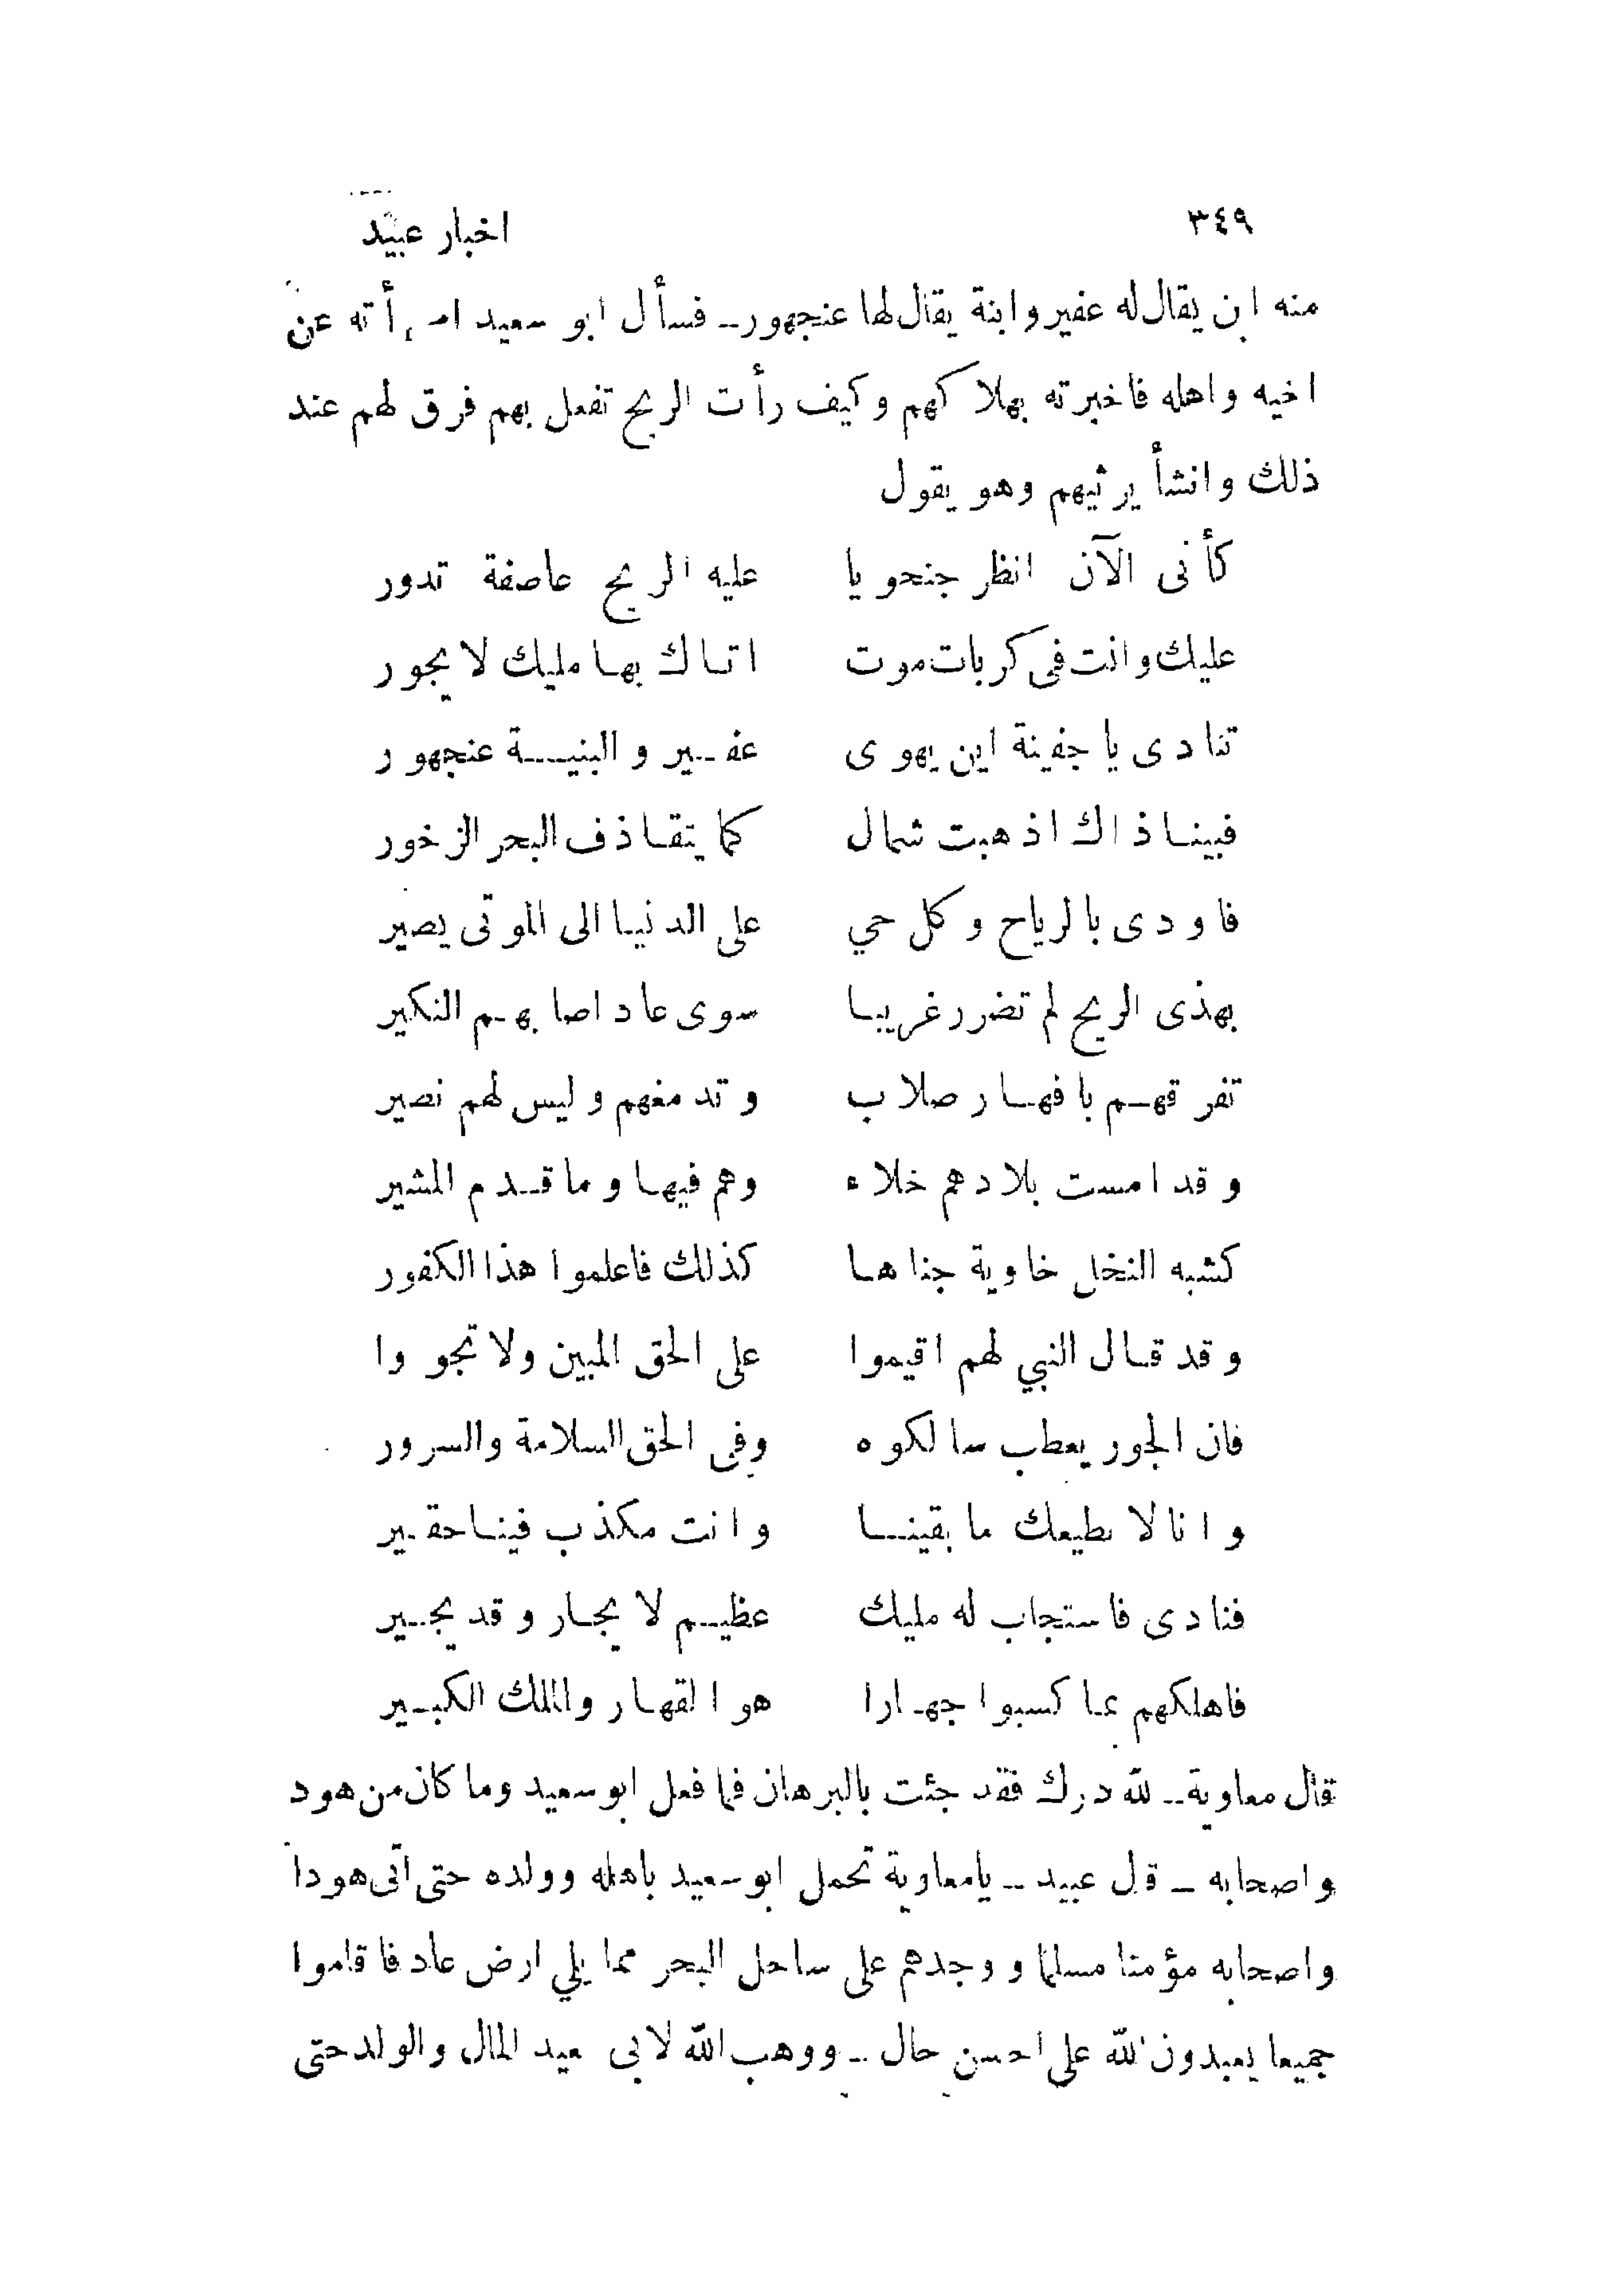 ٣٤٩ اخبار عبيد
منه ابن يقال له عفير وابنة يقال لها عنجهور ــ فسأل ابو سعيد امرأته عن
اخيه واهله فاخبرته بهلاكهم وكيف رأت الريح تفعل بهم فرق لهم عند
ذلك وانشأ يرثيهم وهو يقول
كأنى الآن انظر جنحويا عليه الريح عاصفة تدور
عليك وانت فى كربات موت اتاك بها مليك لا يجور
تنادى يا جفينة اين يهوى عفير والبنية عنجهور
فبينا ذاك اذ هبت شمال كما يتقاذف البحر الزخور
فاودى بالرياح وكل حي على الدنيا الى الموتى يصير
بهذى الريح لم تضرر غريبا سوى عاد اصابهم النكير
تفرقهم بافهار صلاب وتدمغهم وليس لهم نصير
وقد امست بلادهم خلاء وهم فيها وما قدم المشير
كشبه النخل خاوية جناها كذلك فاعلموا هذا الكفور
وقد قال النبي لهم اقيموا على الحق المبين ولا تجوروا
فان الجور يعطب سالكوه وفى الحق السلامة والسرور
وانا لا نطيعك ما بقينا وانت مكذب فينا حقير
فنادى فاستجاب له مليك عظيم لا يجار وقد يجير
فاهلكهم بما كسبوا جهارا هو القهار والملك الكبير
قال معاوية ــ لله درك فقد جئت بالبرهان فما فعل ابو سعيد وما كان من هود
واصحابه ــ قال عبيد ــ يامعاوية تحمل ابو سعيد باهله وولده حتى اتى هودا
واصحابه مؤمنا مسلما ووجدهم على ساحل البحر مما يلي ارض عاد فاقاموا
جميعا يعبدون لله على احسن حال ــ ووهب الله لابى سعيد المال والولد حتى